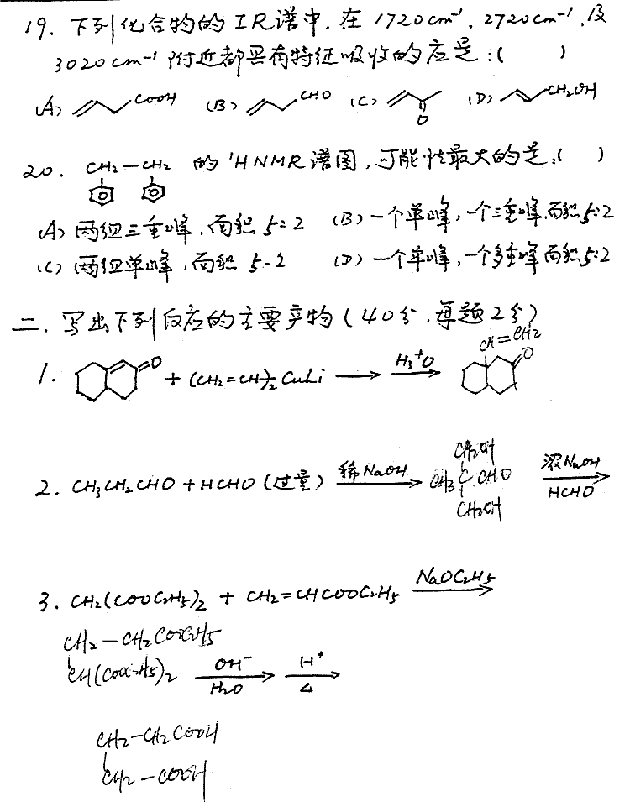 19. 下列化合物的IR谱中,在1720cm⁻¹,2720cm⁻¹,及
3020cm⁻¹附近都具有特征吸收的应是:( )
(A) COOH (B) CHO (C) O (D) CH2OH
20. CH2—CH2 的¹HNMR谱图,可能性最大的是:( )
(A) 两组三重峰,面积5:2 (B) 一个单峰,一个三重峰,面积5:2
(C) 两组单峰,面积5:2 (D) 一个单峰,一个多重峰面积5:2
二、写出下列反应的主要产物(40分,每题2分)
CH=CH2
1. O + (CH2=CH)2CuLi → H3⁺O → O
CH2OH
2. CH3CH2CHO + HCHO (过量) 稀NaOH → CH3 C CHO 浓NaOH → HCHO
CH2OH
3. CH2(COOC2H5)2 + CH2=CHCOOC2H5 NaOC2H5 →
CH2—CH2COOC2H5
CH(COOC2H5)2 OH⁻ → H2O H⁺ → Δ
CH2—CH2COOH
CH2—COOH